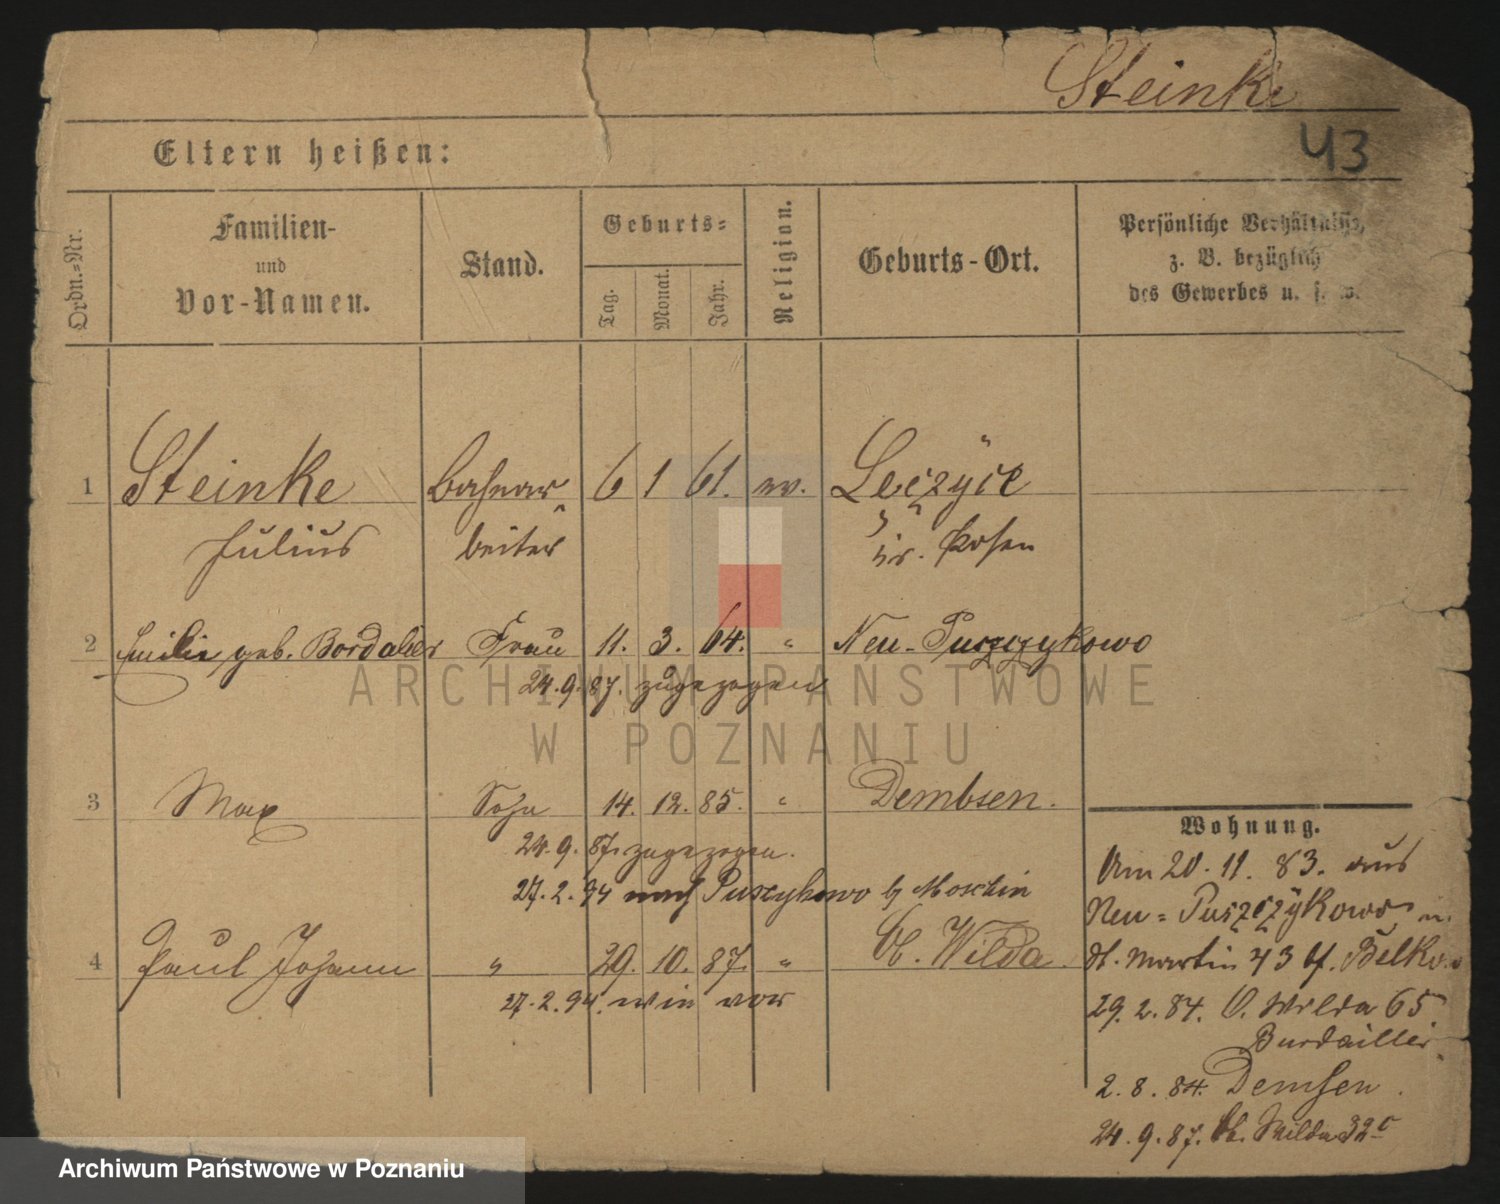 Steinke
43
Eltern heißen:
Ordn.=Nr.
Familien-
und
Vor-Namen.
Stand.
Geburts=
Tag.
Monat.
Jahr.
Religion.
Geburts-Ort.
Persönliche Verhältnisse,
z. B. bezüglich
des Gewerbes u. s. w.
1 Steinke Bahnar 6 1 61. ev.
Julius beiter Kr. Posen
2 Emilie geb. Bordalier Frau 11. 3. 64. " Neu-Puszczykowo
24.9.87. zugezogen
3 Max Sohn 14. 12. 85. " Dembsen.
24.9.87. zugezogen.
27.2.94 nach Puszykowo b/ Moschin
4 Paul Johann " 29. 10. 87. " Ob. Wilda.
27.2.94. wie vor
Wohnung.
Am 20. 11. 83. aus
Neu=Puszczykowo n.
St. Martin 43 b/.
29. 2. 84. O. Wilda 65
Burdaillier
2. 8. 84. Demsen.
24. 9. 87. Ob. Wilda 32
ARCHIWUM PAŃSTWOWE
W POZNANIU
Archiwum Państwowe w Poznaniu